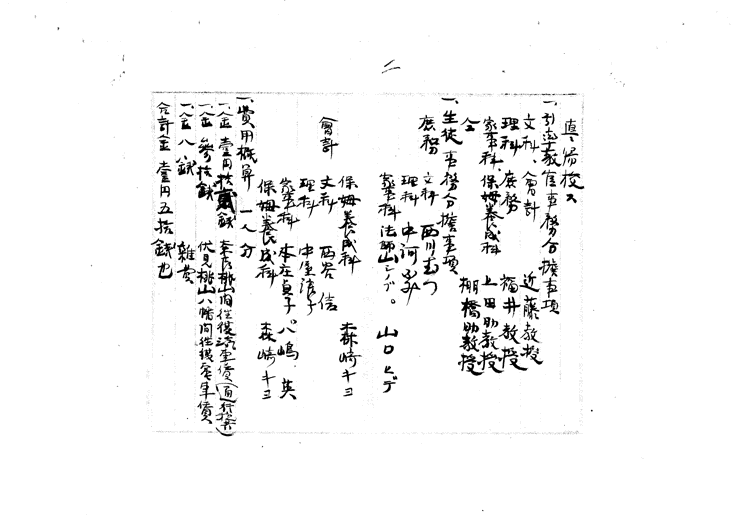 一、引率教官事務分擔事項
文科、會計 近藤教授
理科 庶務 福井教授
家事科、保姆養成科 上田助教授
仝 棚橋助教授
一、生徒事務分擔事項
庶務 文科 西川
理科 中河
家事科 法師山シゲ。 山口ヒデ
保姆養成科 森崎キヨ
會計 文科 西谷信
理科 中屋
家事科 本庄貞子。八嶋英
保姆養成科 森崎キヨ
一、費用概算 一人分
一、金壹円拾貳銭 奈良桃山間往復汽車賃(通行税共)
一、金參拾銭 伏見桃山八幡間往復電車賃
一、金八銭 雜費
合計金壹円五拾銭也